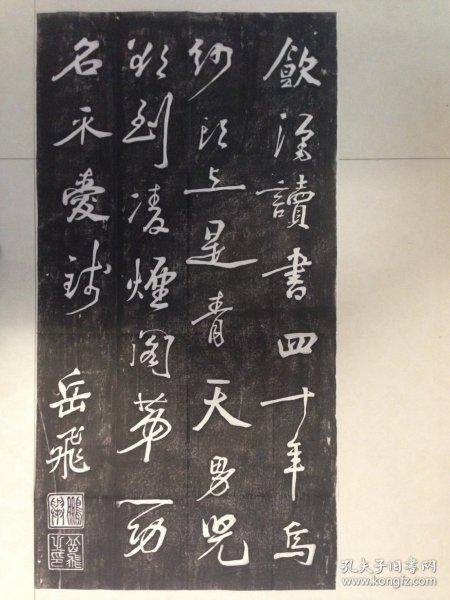 飲酒讀書四十年烏
紗頭上是青天男児
欲到凌煙阁第一功
名不愛錢
岳飛
鵬舉
岳飛之印
孔夫子旧书网
www.kongfz.com